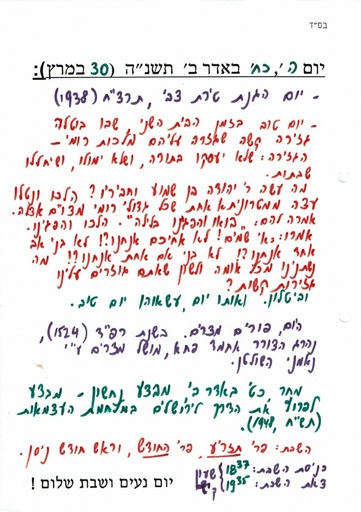 בס"ד
יום ה', כח' באדר ב' תשנ"ה (30 במרץ):
- יום הגנת טירת צבי, תרצ"ח (1938)
- יום טוב בזמן הבית השני, שבו בוטלה
גזירה קשה שגזרה עליהם מלכות רומי -
הגזירה: שלא יעסקו בתורה, ושלא ימולו, ושיחללו
שבתות.
מה עשה ר' יהודה בן שמוע וחביריו? הלכו ונטלו
עצה ממטרוניתא אחת שכל גדולי רומי מצויים אצלה.
אמרה להם: "בואו והפגינו בלילה". הלכו והפגינו.
אמרו: "אי שמים! לא אחיכם אנחנו?! לא בני אב
אחד אנחנו?! לא בני אם אחת אנחנו?! מה
נשתנינו מכל אומה ולשון שאתם גוזרים עלינו
גזירות קשות?
וביטלון. ואותו יום, עשאוהו יום טוב.
היום, פורים מצרים. בשנת רפ"ד (1524),
נהרג הצורר אחמד פחא, מושל מצרים ע"י
נאמני השולטן.
מחר, כט' באדר ב', מבצע נחשון - מבצע
לפרוץ את הדרך לירושלים במלחמת העצמאות
(תש"ח, 1948).
השבת: פר' תזריע, פר' החודש, וראש חודש ניסן.
כניסת השבת: 1837
צאת השבת: 1935
שעון
קיץ
יום נעים ושבת שלום !